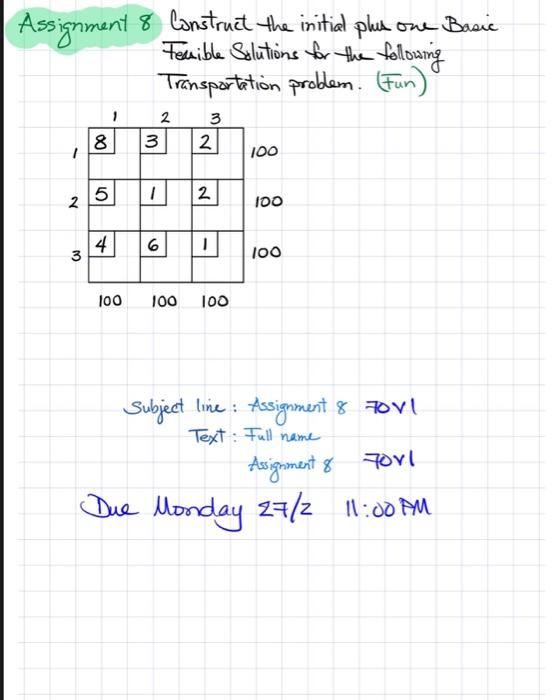 Assignment 8 Construct the initial plus one Basic
Feasible Solutions for the following
Transportation problem. (Fun)
1 2 3
1 8 3 2 100
2 5 1 2 100
3 4 6 1 100
100 100 100
Subject line : Assignment 8 70V1
Text : Full name
Assignment 8 70V1
Due Monday 27/2 11:00 PM